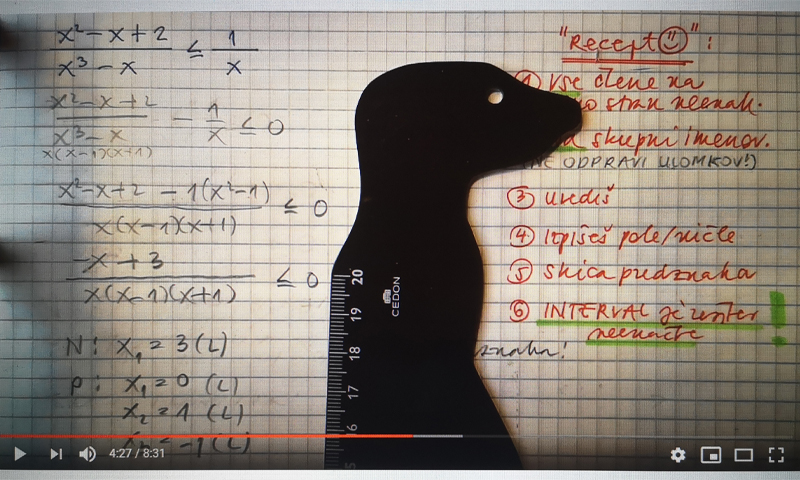 x² - x + 2 / x³ - x ≤ 1 / x
x² - x + 2 / x³ - x - 1 / x ≤ 0
x(x-1)(x+1)
x² - x + 2 - 1(x² - 1) / x(x-1)(x+1) ≤ 0
-x + 3 / x(x-1)(x+1) ≤ 0
N: x₁ = 3 (L)
P: x₁ = 0 (L)
x₂ = 1 (L)
= -1 (L)
"Recept☺":
① vse člene na
stran neenak.
skupni imenov.
ODPRAVI ULOMKOV!)
③ urediš
④ Izpišeš pole/ničle
⑤ skica predznaka
⑥ INTERVAL
neenačbe
!
znaka!
20
CEDON
19
18
17
4:27 / 8:31